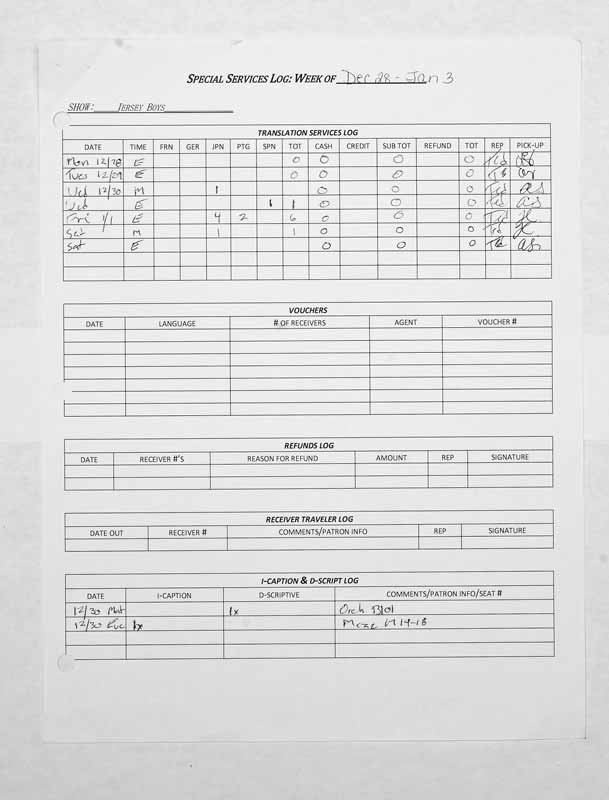 SPECIAL SERVICES LOG: WEEK OF Dec 28 - Jan 3
SHOW: JERSEY BOYS
TRANSLATION SERVICES LOG
DATE TIME FRN GER JPN PTG SPN TOT CASH CREDIT SUB TOT REFUND TOT REP PICK-UP
Mon 12/28 E 0 0 0 0 Ted
Tues 12/29 E 0 0 0 0
Wed 12/30 M 1 0 0 0 Ted as
Wed E 1 1 0 0 0 Ted as
Fri 1/1 E 4 2 6 0 0 0 Ted
Sat M 1 1 0 0 0 Ted
Sat E 0 0 0 as
VOUCHERS
DATE LANGUAGE # OF RECEIVERS AGENT VOUCHER #
REFUNDS LOG
DATE RECEIVER #'S REASON FOR REFUND AMOUNT REP SIGNATURE
RECEIVER TRAVELER LOG
DATE OUT RECEIVER # COMMENTS/PATRON INFO REP SIGNATURE
I-CAPTION & D-SCRIPT LOG
DATE I-CAPTION D-SCRIPTIVE COMMENTS/PATRON INFO/SEAT #
12/30 Mat 1x Orch B101
12/30 Eve 1x Mezz H 14-18